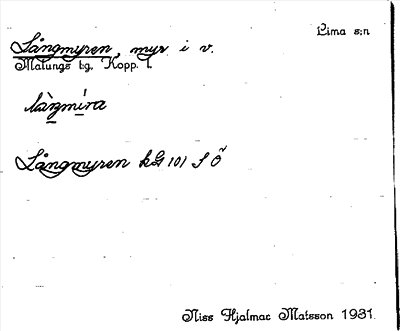 Lima s:n
Långmyren, myr i v.
Malungs tg, Kopp. l.
làṉgmi̱ra
Långmyren kG 101 S Ö
Niss Hjalmar Matsson 1931.